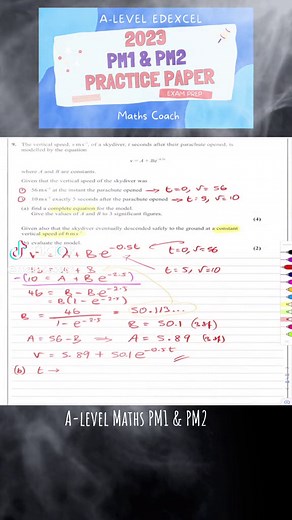 A-LEVEL EDEXCEL
2023
PM1 & PM2
PRACTICE PAPER
EXAM PREP
Maths Coach
9. The vertical speed, v ms⁻¹, of a skydiver, t seconds after their parachute opened, is
modelled by the equation
where A and B are constants.
Given that the vertical speed of the skydiver was
① 56 ms⁻¹ at the instant the parachute opened → t=0, v=56
② 10 ms⁻¹ exactly 5 seconds after the parachute opened → t=5, v=10
(a) find a complete equation for the model.
Give the values of A and B to 3 significant figures.
(4)
Given also that the skydiver eventually descended safely to the ground at a constant
vertical speed of 6 ms⁻¹
evaluate the model.
(2)
v = A + Be^-0.5t
t=0, v=56
t=5, v=10
56 = A + B
-(10 = A + Be^-2.5)
46 = B - Be^-2.5
= B(1 - e^-2.5)
B = 46 / (1 - e^-2.5) = 50.113...
B = 50.1 (3sf)
A = 56 - B ⇒ A = 5.89 (3sf)
v = 5.89 + 50.1e^-0.5t
(b) t →
A-LEVEL MATHS PM1 & PM2